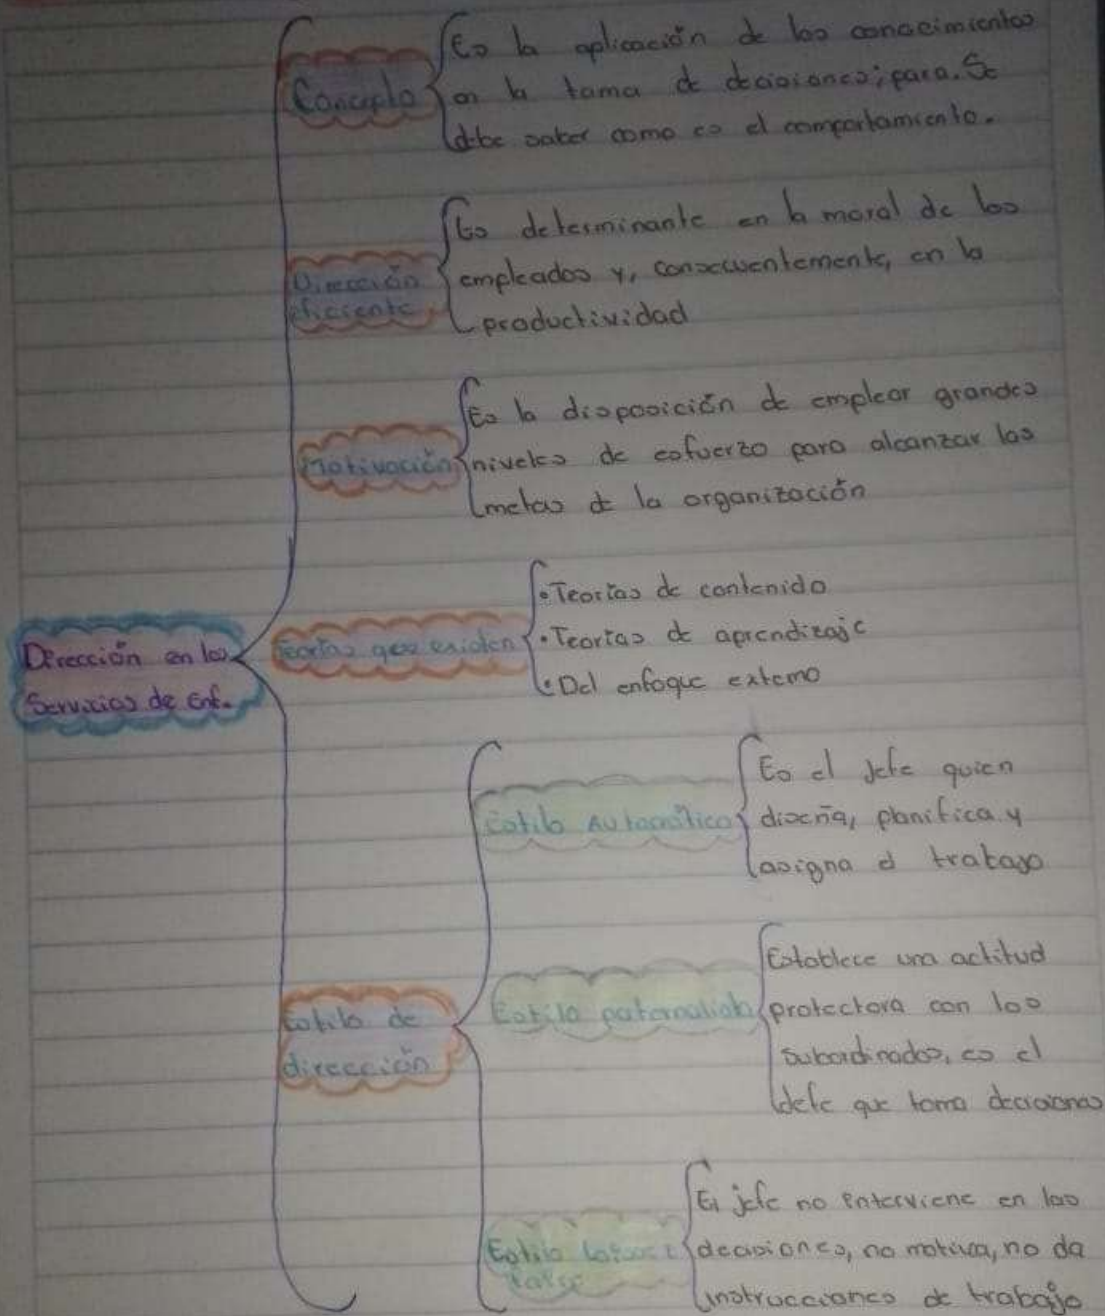 Concepto
Es la aplicación de los conocimientos
en la toma de decisiones; para. Se
debe saber como es el comportamiento.
Dirección
eficiente
Es determinante en la moral de los
empleados y, consecuentemente, en la
productividad
Motivación
Es la disposición de emplear grandes
niveles de esfuerzo para alcanzar las
metas de la organización
Dirección en los
Servicios de Enf.
Teorías que existen
• Teorías de contenido
• Teorías de aprendizaje
• Del enfoque externo
Estilo de
dirección
Estilo Autocrático
Es el jefe quien
diseña, planifica y
asigna el trabajo
Estilo paternalista
Establece una actitud
protectora con los
subordinados, es el
jefe que toma decisiones
Estilo
El jefe no interviene en las
decisiones, no motiva, no da
instrucciones de trabajo